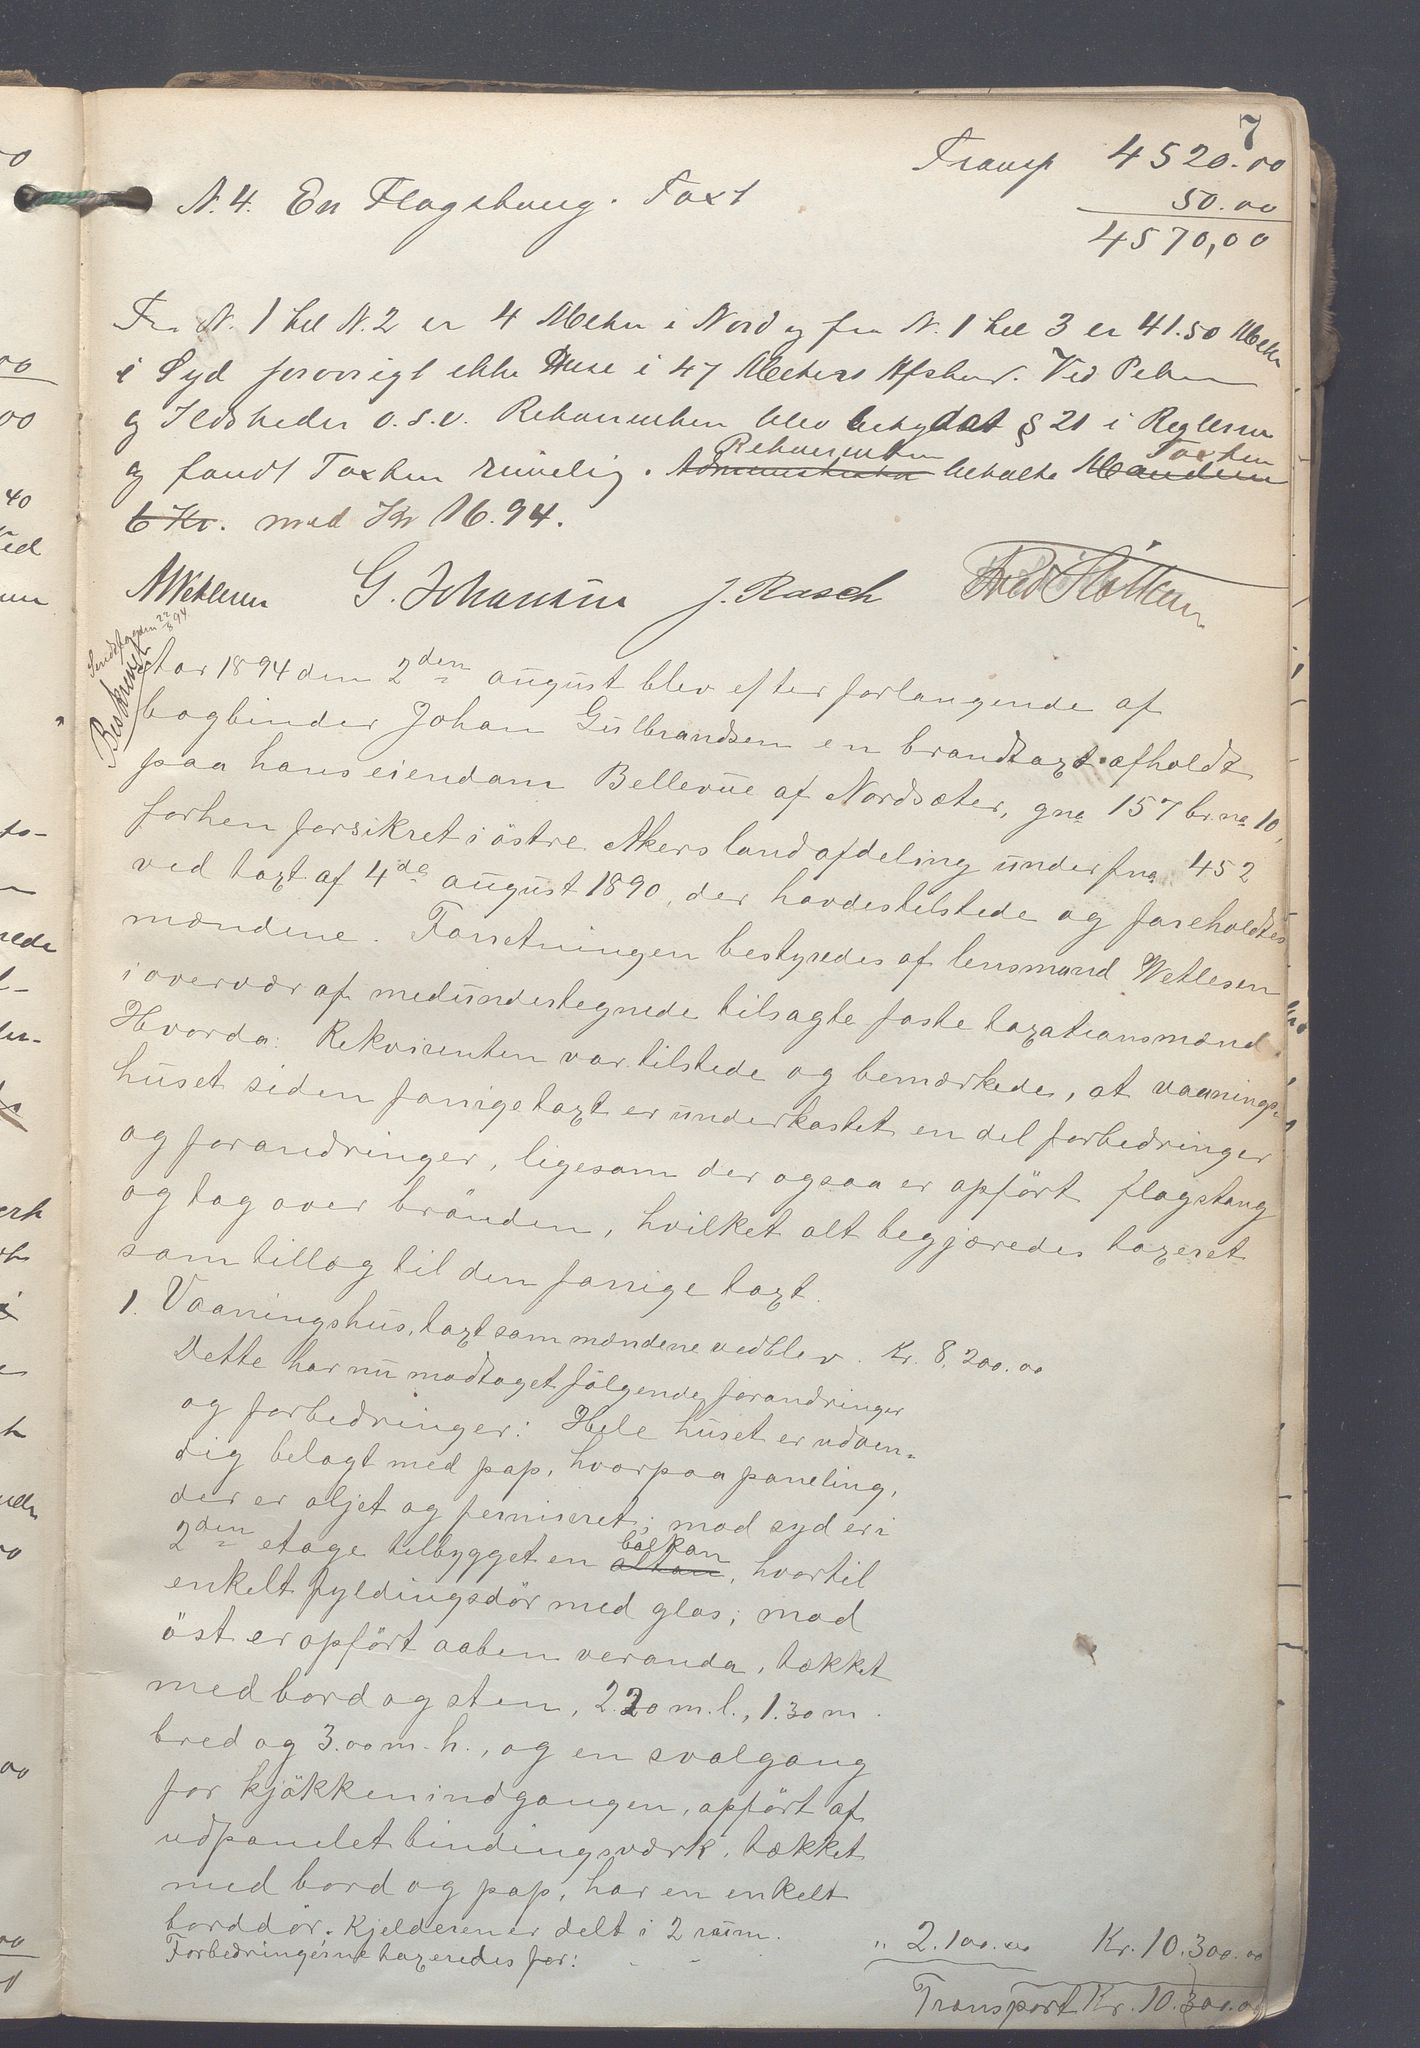 7
Transp 4520.00
N. 4. En Flagstang. Taxt 50.00
4570,00
Fra N. 1 til N. 2 er 4 Meter i Nord og fra N. 1 til 3 er 41.50 Meter
i Syd forøvrigt ikke Huse i 47 Meters Afstand. Ved Peber
og Ildsteder o.s.v. Rekvirenten blev betydet § 21 i Reglerne
og fandt Taxten rimelig. Administrator Rekvirenten betalte Mændene Taxten
6 Kr. med Kr 16.94.
AWetlesen G. Johansen J. Rasch
Beskrevet
Aar 1894 den 2den august blev efter forlangende af
bogbinder Johan Gulbrandsen en brandtaxt afholdt
paa hans eiendom Bellevue af Nordsæter, gno 157 br.no 10,
forhen forsikret i östre Akers landafdeling under fno 452
ved taxt af 4de august 1890, der havdes tilstede og foreholdtes
mændene. Forretningen bestyredes af lensmand Wetlesen
i overvær af medundertegnede tilsagte faste taxationsmænd.
Hvorda: Rekvirenten var tilstede og bemærkede, at vaanings-
huset siden forrige taxt er underkastet en del forbedringer
og forandringer, ligesom der ogsaa er opfört flagstang
og tag over brönden, hvilket alt begjæredes taxeret
som tillæg til den forrige taxt.
1. Vaaningshus, taxt som mændene vedblev. Kr. 8.200.00
Dette har nu modtaget fölgende forandringer
og forbedringer: Hele huset er udven-
dig belagt med pap, hvorpaa paneling,
der er oljet og ferniseret; mod syd er i
2den etage tilbygget en altan balkon, hvortil
enkelt fyldingsdör med glas; mod
öst er opfört aaben veranda, tækket
med bord og sten, 2.20 m. l., 1.30 m.
bred og 3.00 m. h., og en svalgang
for kjökkenindgangen, opfört af
udpanelet bindingsværk, tækket
med bord og pap, har en enkelt
borddör. Kjelderen er delt i 2 rum.
Forbedringerne taxeredes for: " 2.100.00 Kr. 10.300.00
Transport Kr. 10.300.00